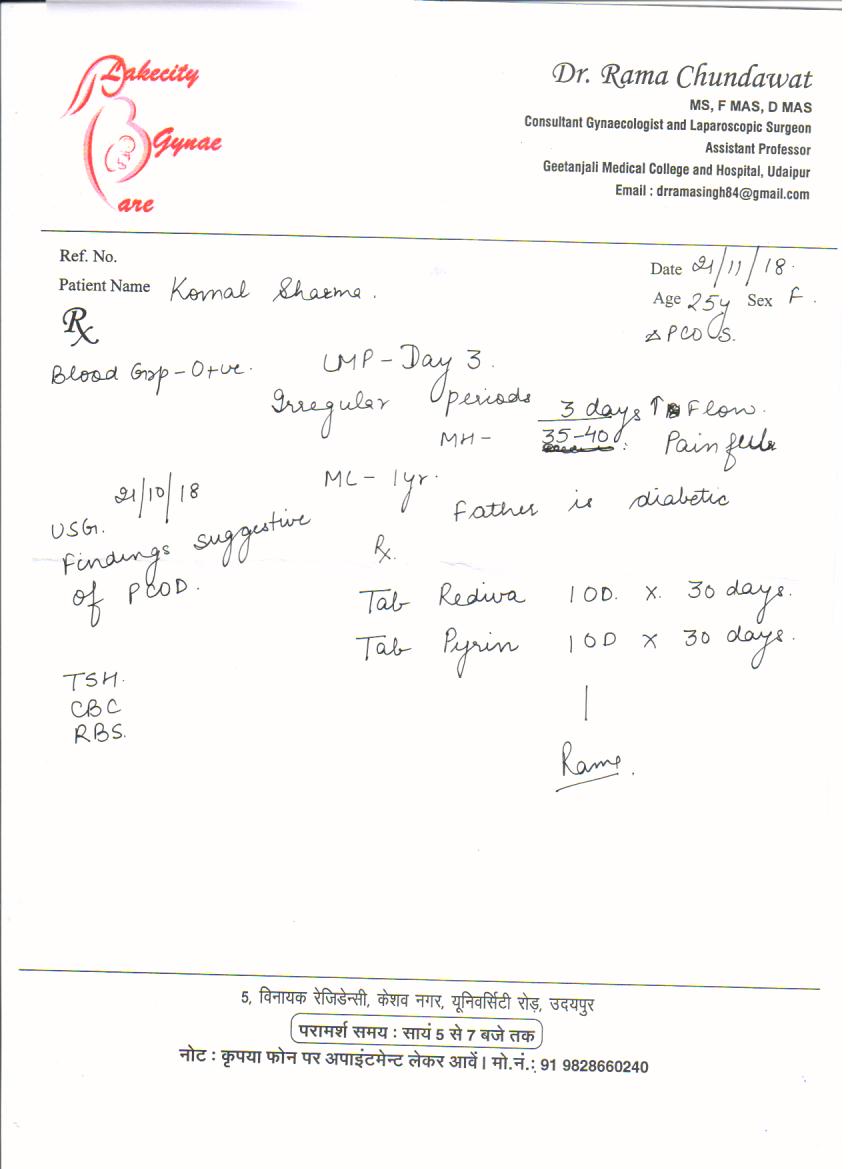 Lakecity
Gynae
Care
Dr. Rama Chundawat
MS, F MAS, D MAS
Consultant Gynaecologist and Laparoscopic Surgeon
Assistant Professor
Geetanjali Medical College and Hospital, Udaipur
Email : drramasingh84@gmail.com
Ref. No.
Date 21/11/18.
Patient Name Komal Sharma.
Age 25y Sex F.
Rx
△ PCOS.
Blood Grp - O+ve.
LMP - Day 3.
Irregular periods
3 days ↑ Flow.
MH - 35-40 : Painful
ML - 1yr.
21/10/18
Father is diabetic
USG.
Findings suggestive
of PCOD.
Rx.
Tab Rediva 1 OD. x. 30 days.
Tab Pyrin 1 OD x 30 days.
TSH.
CBC
RBS.
Rama.
5, विनायक रेजिडेन्सी, केशव नगर, यूनिवर्सिटी रोड़, उदयपुर
परामर्श समय : सायं 5 से 7 बजे तक
नोट : कृपया फोन पर अपाइंटमेन्ट लेकर आवें। मो.नं.: 91 9828660240